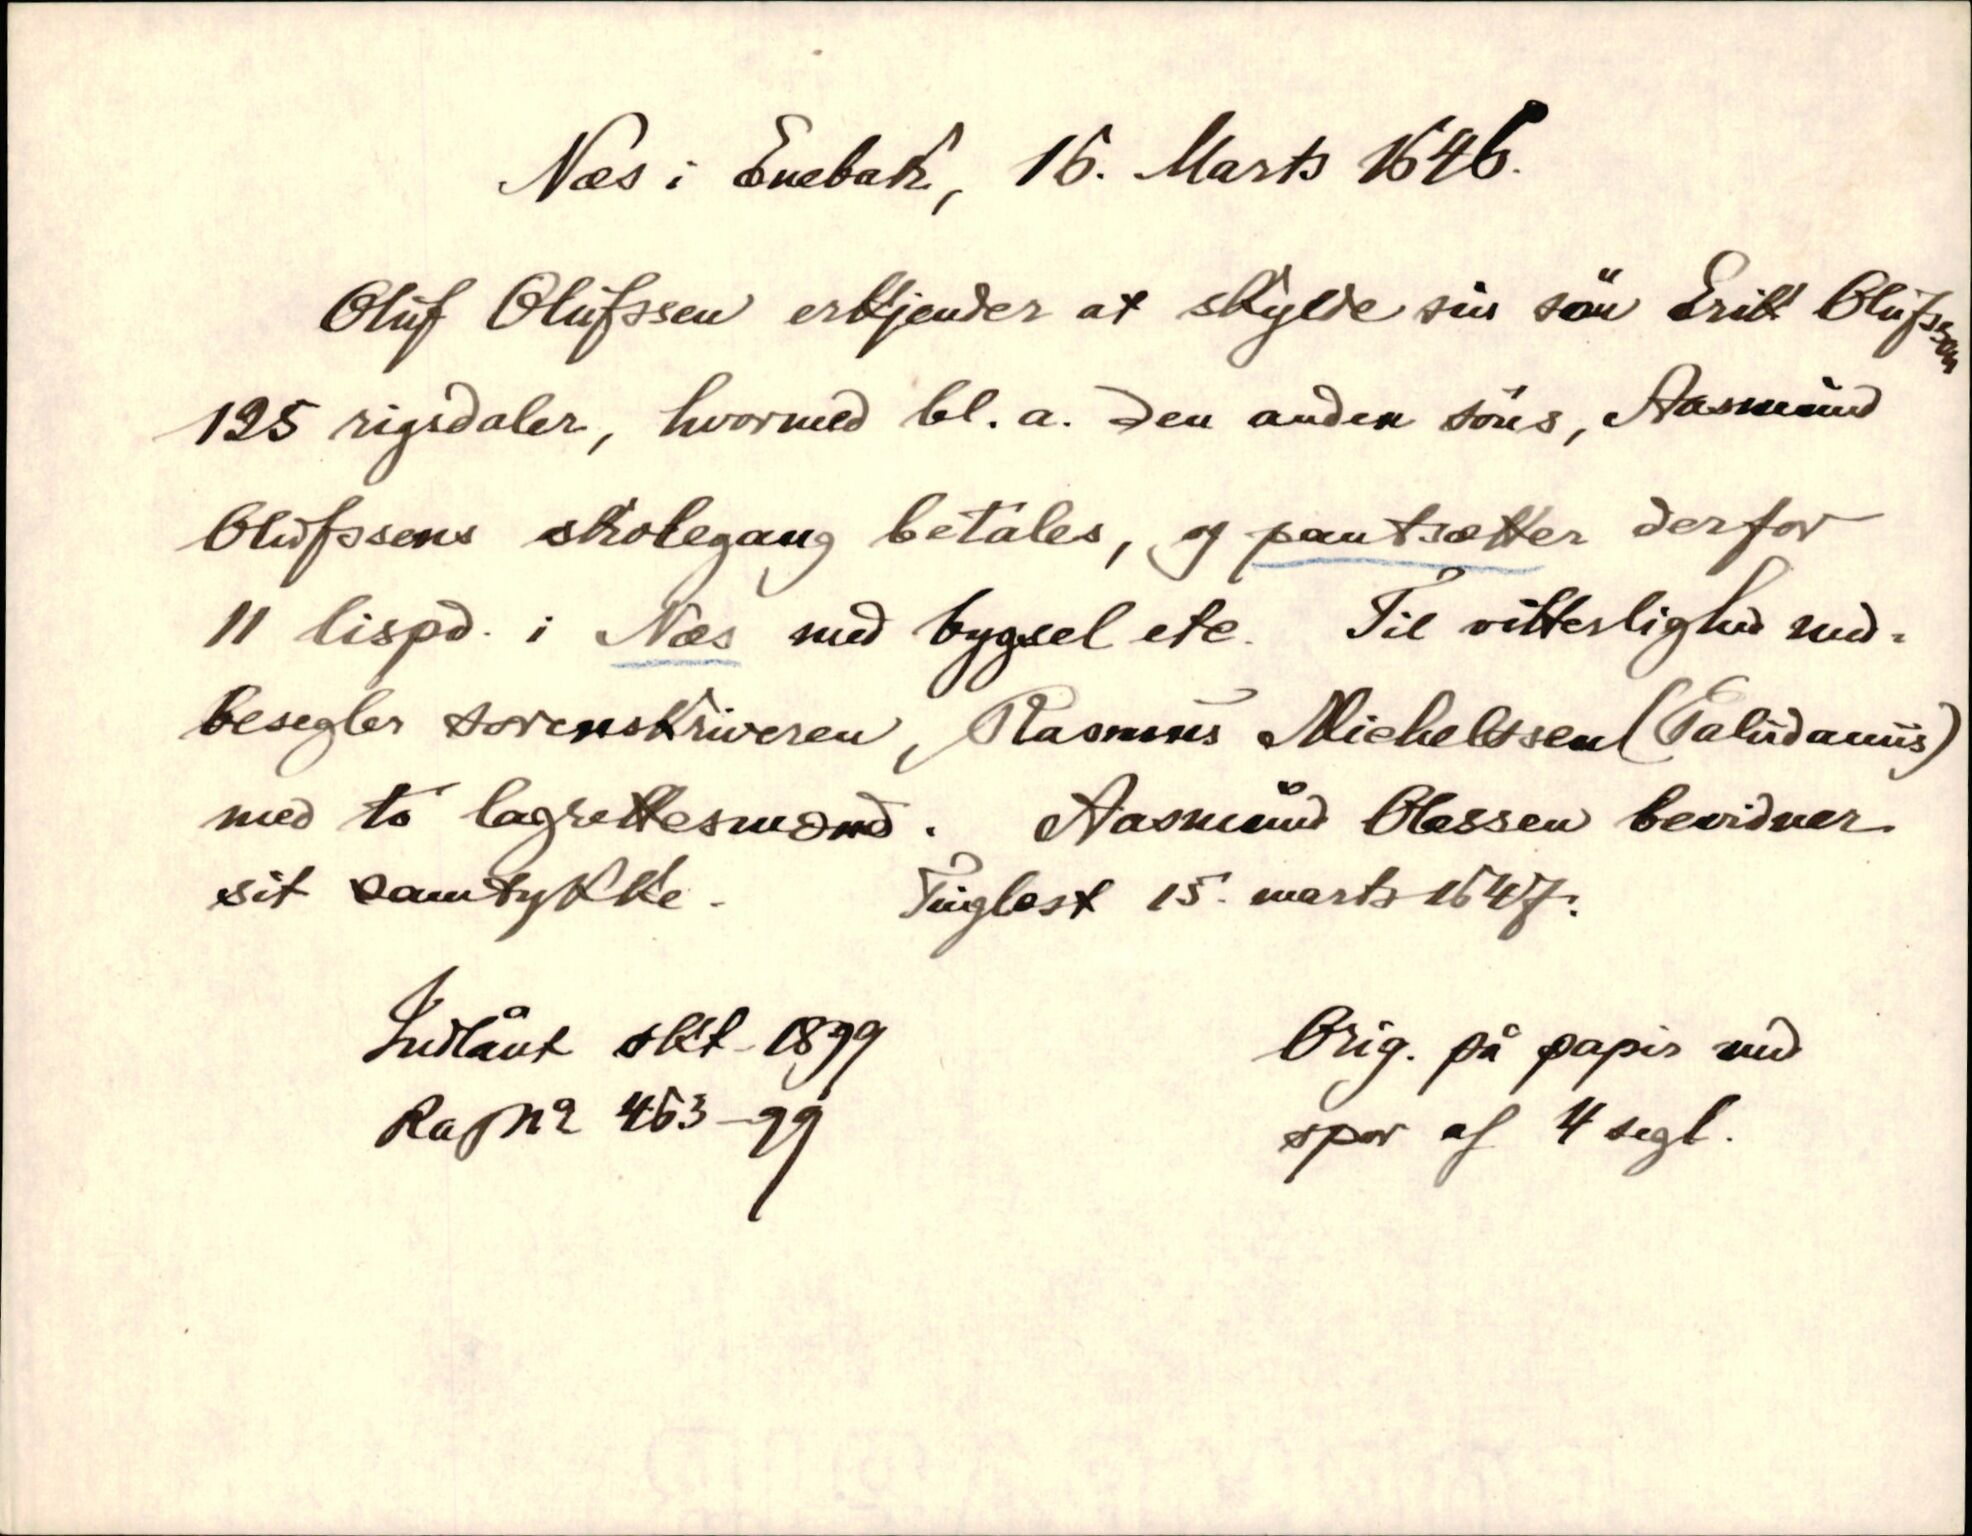 Næs i Enebak, 16. Marts 1646.
Oluf Olufssen erkjender at skylde sin sön Erik Olufssen
125 rigsdaler, hvormed bl. a. den anden söns, Aasmund
Olufssens skolegang betales, og pantsætter derfor
11 lispd. i Næs med bygsel etc. Til vitterlighed med-
besegler sorenskriveren, Rasmus Micheltssen (Paludanus)
med to lagrettesmænd. Aasmund Olessen bevidner
sit samtykke. Tinglest 15. marts 1647.
Indlånt okt. 1899
Ra J№ 463-99
Orig. på papir med
spor af 4 segl.